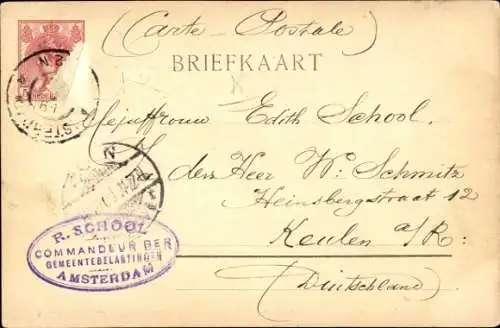 (Carte Postale)
BRIEFKAART
Mejuffrouw Edith School.
p/a den Heer W. Schmitz
Heinsbergstraat 12
Keulen a/R:
(Duitschland)
R. SCHOOL
COMMANDEUR DER
GEMEENTEBELASTINGEN
AMSTERDAM
AMSTERDAM